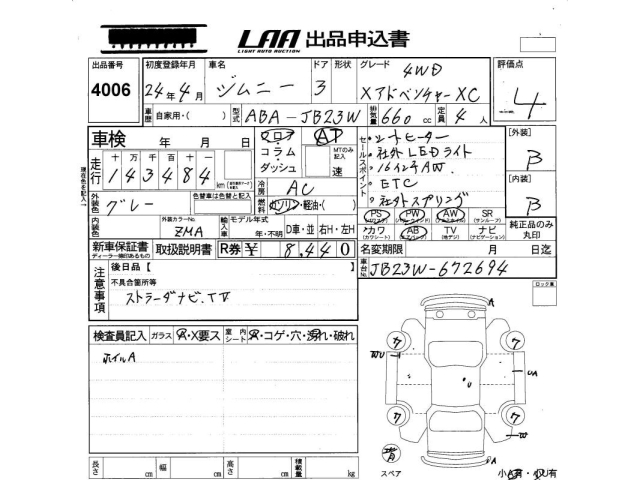 LAA 出品申込書
LIGHT AUTO AUCTION
出品番号 4006
初度登録年月 24年4月
車名 ジムニー
ドア 3 形状
グレード 4WD XアドベンチャーXC
評価点 4
車歴 自家用・( )
型式 ABA-JB23W
排気量 660cc 定員 4人
車検 年 月 日
走行 十万千百十 143484 km
フロア・コラム・ダッシュ
AT
MTのみ記入 速
冷房 AC
燃料 ガソリン・軽油・( )
セールスポイント
・シートヒーター
・社外LEDライト
・16インチAW.
・ETC
・社外スプリング
[外装] B
[内装] B
外装色 グレー
色替車は色替と記入
内装色
外装カラーNo. ZMA
輸入車 モデル年式 年・不明 D車・並 右H・左H
PS (パワステ) PW (パワーウインド) AW (アルミホイール) SR (サンルーフ)
カワ (カワシート) AB (エアバッグ) TV (地デジ) ナビ (ナビゲーション)
純正品のみ丸印
新車保証書 ディーラー捺印あるもの
取扱説明書
R券 ¥ 8,440
名変期限 月 日迄
車台No. JB23W-672694
注意事項
後日品【 】
不具合箇所等
ストラーダナビ.TV
ロック車
検査員記入 ガラス Ⓐ・X要ス 室内シート Ⓐ・コゲ・穴・汚れ・破れ
ホイルA
A
7 7
WU UA
7 7
W
A
スペア
小A有・小U有
長さ cm 幅 cm 高さ cm 積載量 kg